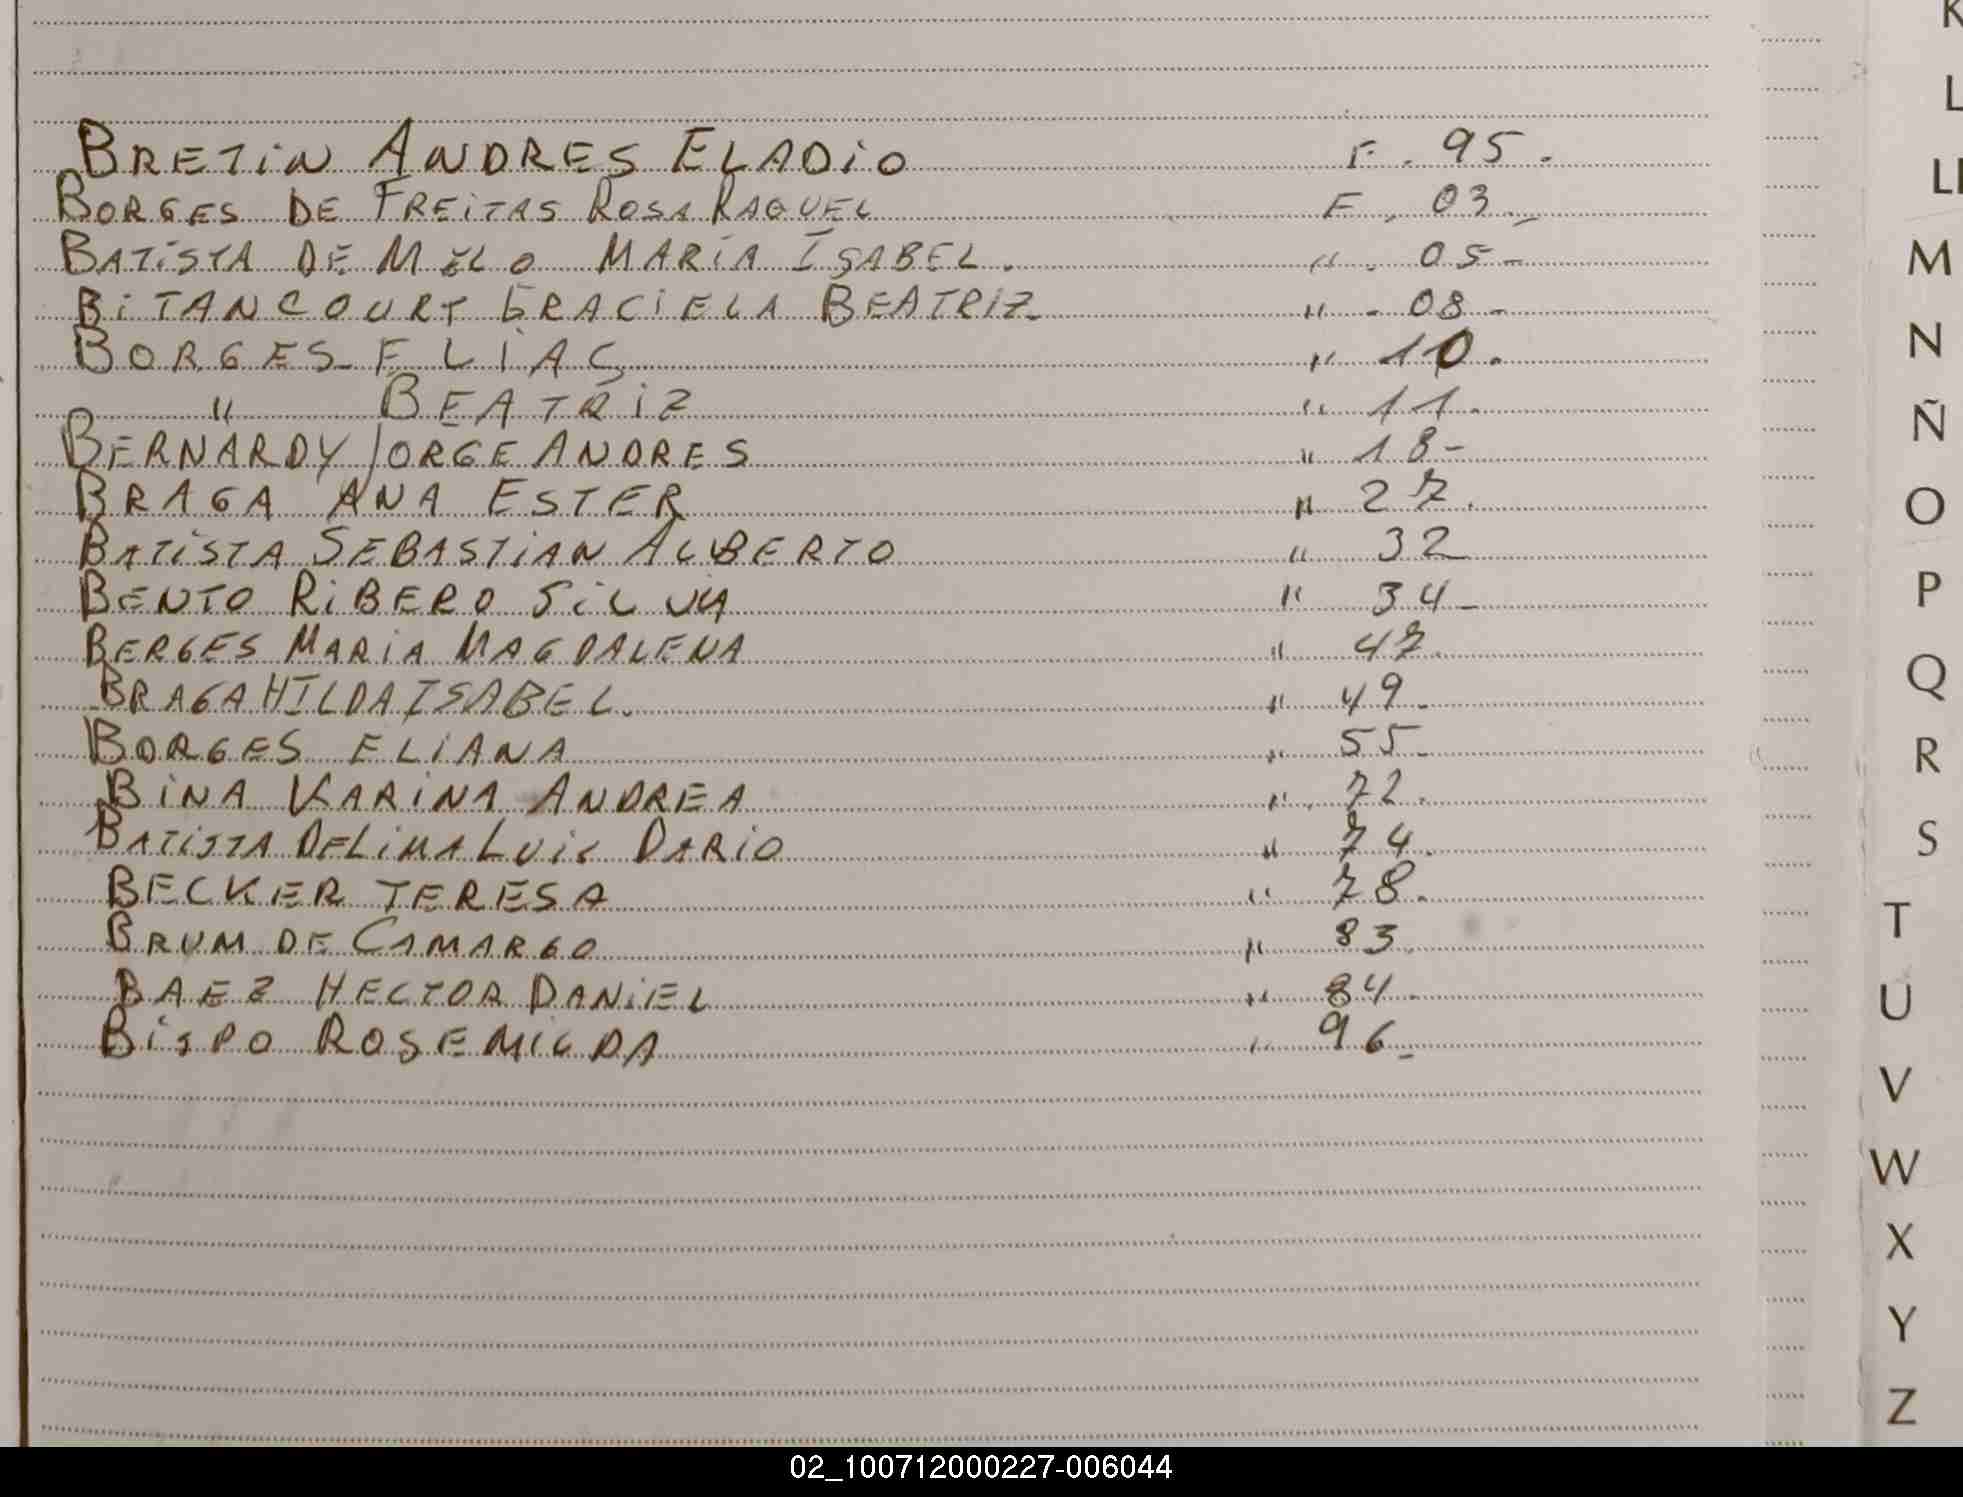 BRETiN ANDRES ELADiO F. 95.
BORGES DE FREiTAS ROSA RAQUEL F. 03.-
BATiSTA DE MELO MARiA ISABEL. " . 05-
BiTANCOURT GRACiELA BEATRIZ- " - 08-
BORGES ELIAS " 10.
" BEATRiZ " 11.
BERNARDY JORGE ANDRES " 18-
BRAGA ANA ESTER " 27.
BATiSTA SEBASTiAN ALBERTO " 32
BENTO RiBERO SiLVIA " 34-
BERGES MARiA MAGDALENA " 47.
BRAGA HILDA ISABEL. " 49.
BORGES ELiANA " 55-
BiNA KARiNA ANDREA " . 72.
BATiSTA DE LiMA LUiS DARiO " 74.
BECKER TERESA " 78.
BRUM DE CAMARGO " 83.
BAEZ HECTOR DANiEL " 84.
BiSPO ROSEMiLDA " 96-
K
L
Ll
M
N
Ñ
O
P
Q
R
S
T
U
V
W
X
Y
Z
02_100712000227-006044